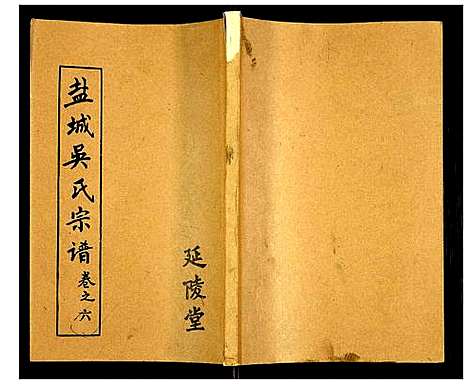 盐城吴氏宗谱 卷之六
延陵堂